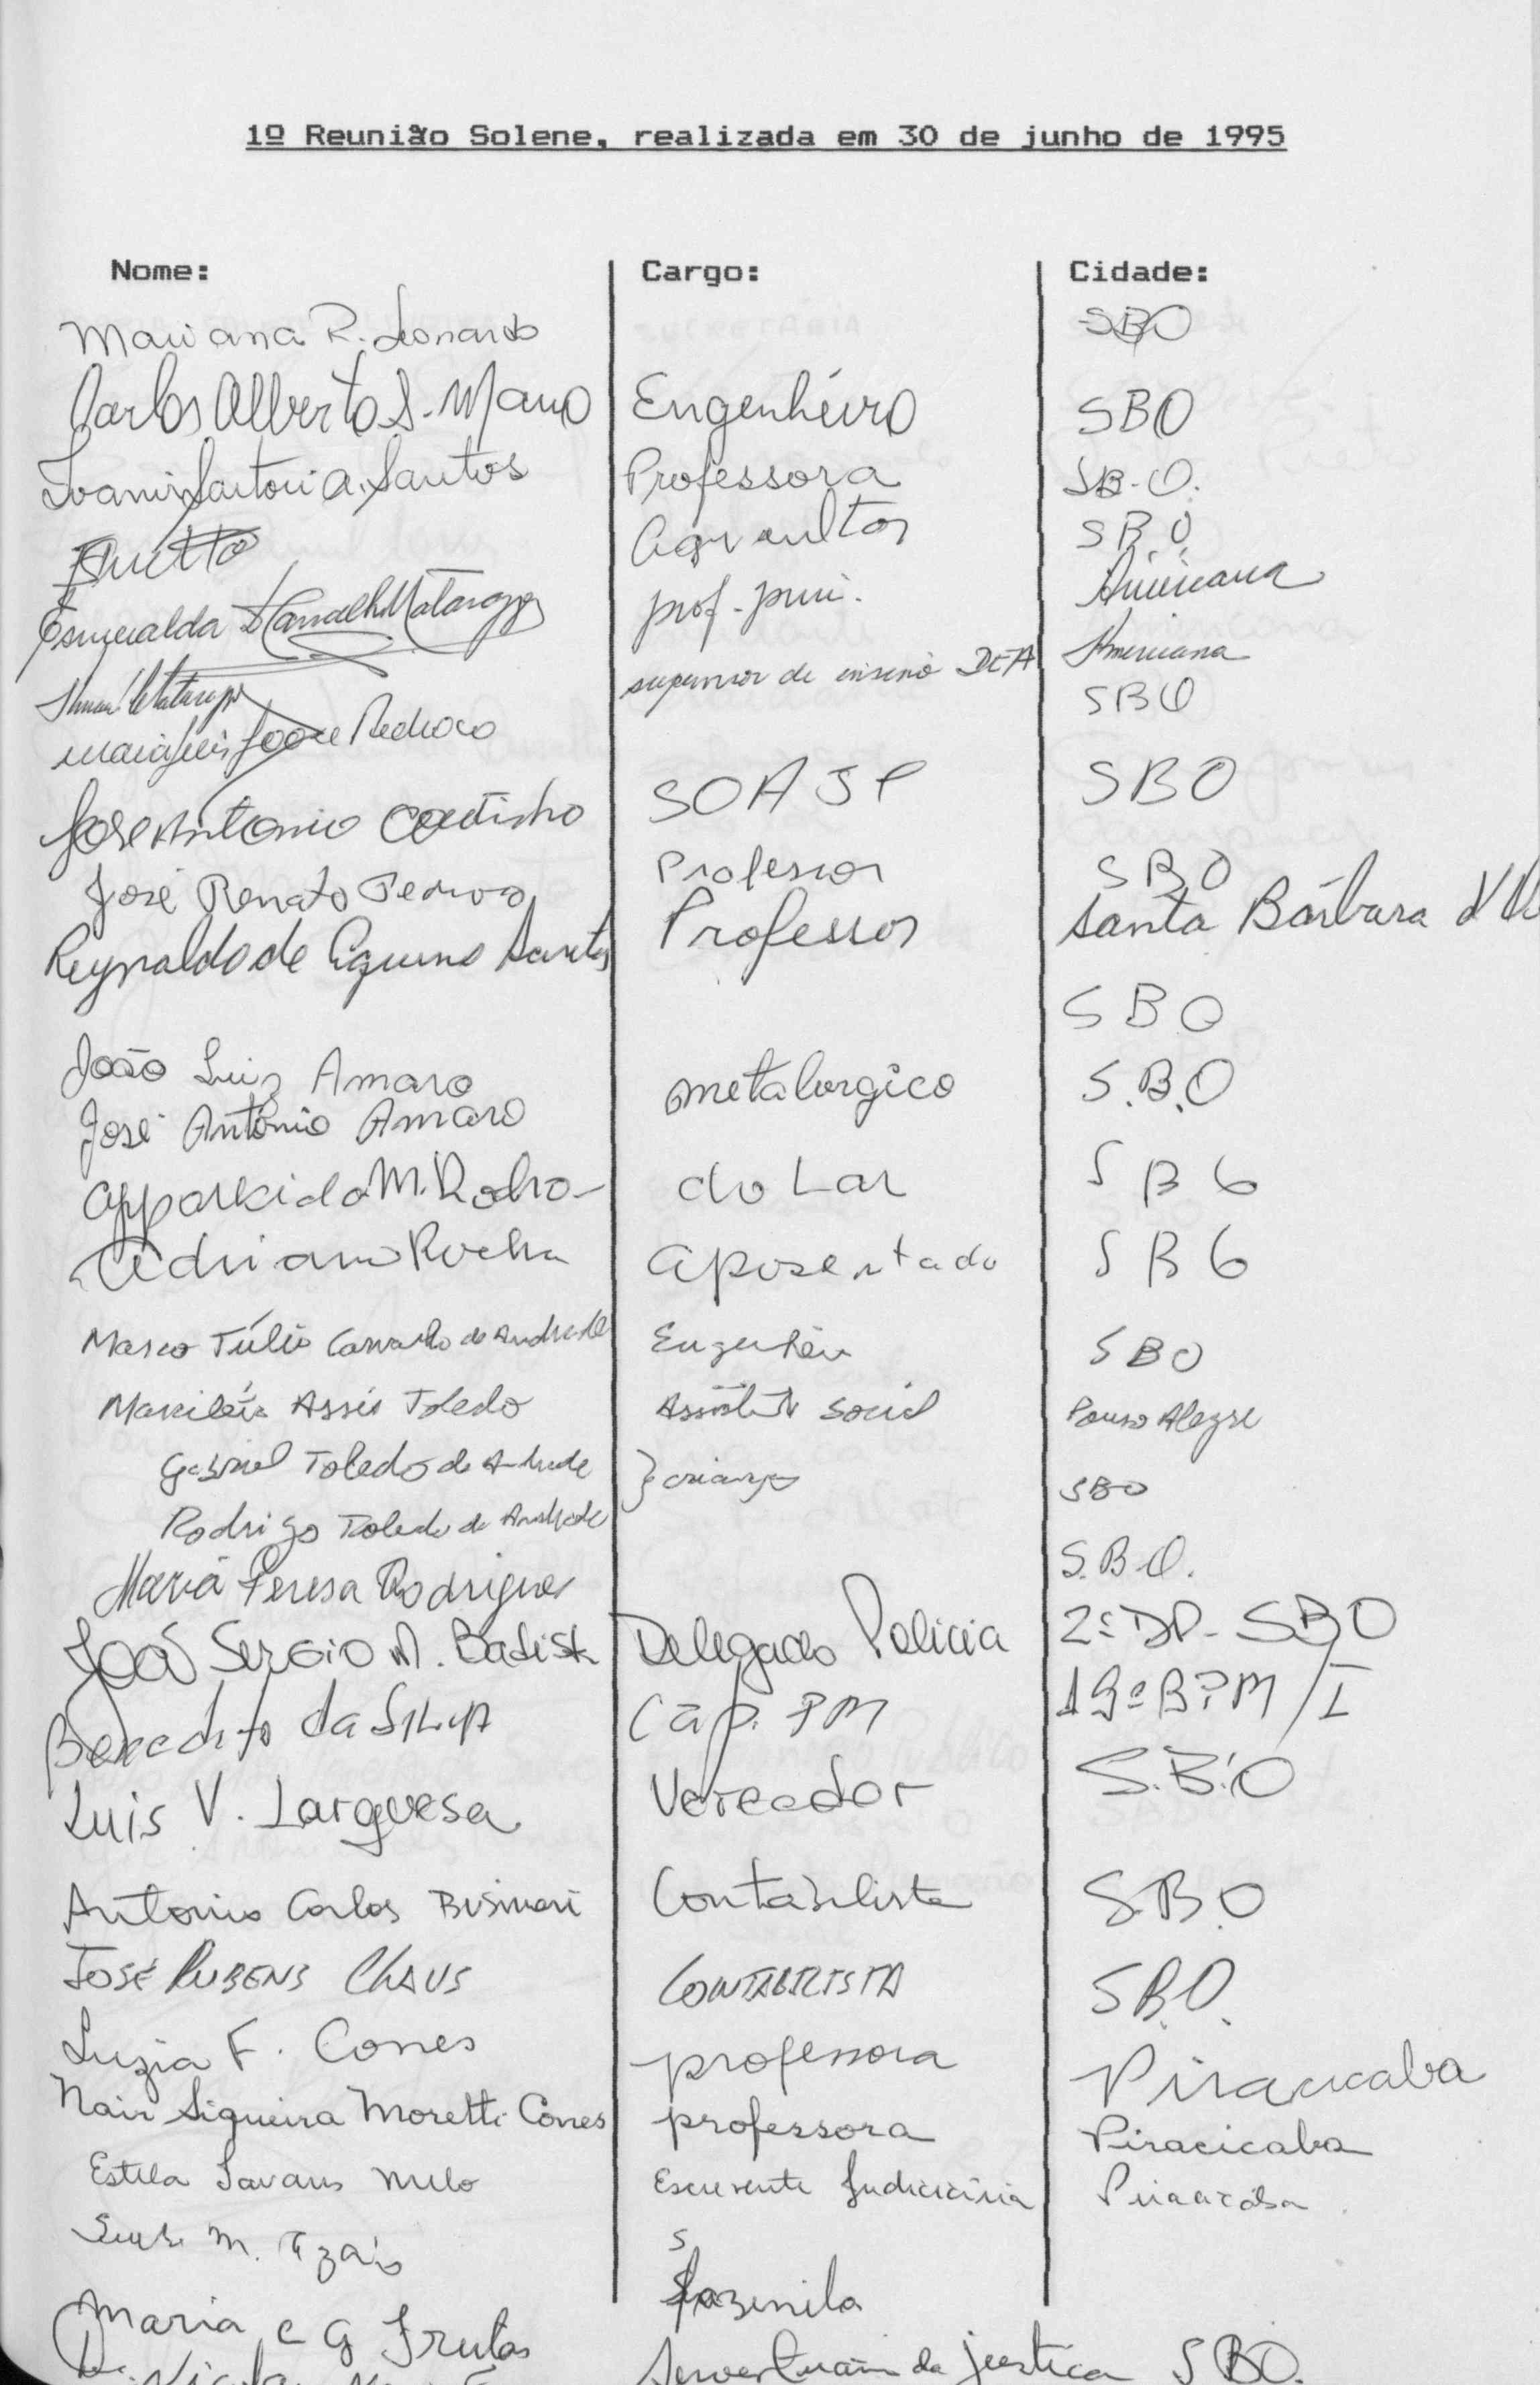 1º Reunião Solene, realizada em 30 de junho de 1995
Nome: Cargo: Cidade:
Mariana R. Leonardo SBO
Carlos Alberto S. Mano Engenheiro SBO
Santos Professora S.B.O.
Agricultor SBO
Esmeralda prof. prim. Americana
supervisor de ensino DEA Americana
SBO
José Antonio Coutinho SOAJP SBO
José Renato Pedroso Professor SBO
Reynaldo de Aquino Santos Professor Santa Bárbara
João Luiz Amaro SBO
José Antônio Amaro metalurgico S.B.O
Apparecida M. do Lar SBO
Adriano Rocha aposentado SBO
Marco Túlio Carvalho de Andrade Engenheiro SBO
Assis Toledo Assistente Social Pouso Alegre
Gabriel Toledo de Andrade } crianças SBO
Rodrigo Toledo de Andrade
Maria Teresa Rodrigues S.B.O.
João Sergio A. Batista Delegado Policia 2º DP - SBO
Benedito da Silva Cap. PM 19º BPM/I
Luis V. Larguesa Vereador S.B.O
Antonio Carlos Contabilista S.B.O
José Rubens Contabilista S.B.O.
Luzia F. Cones professora Piracicaba
Nair Siqueira Moretti Cones professora Piracicaba
Estela Melo Escrevente Judiciária Piracicaba
M.
Maria C G Frutas
da justiça SBO.